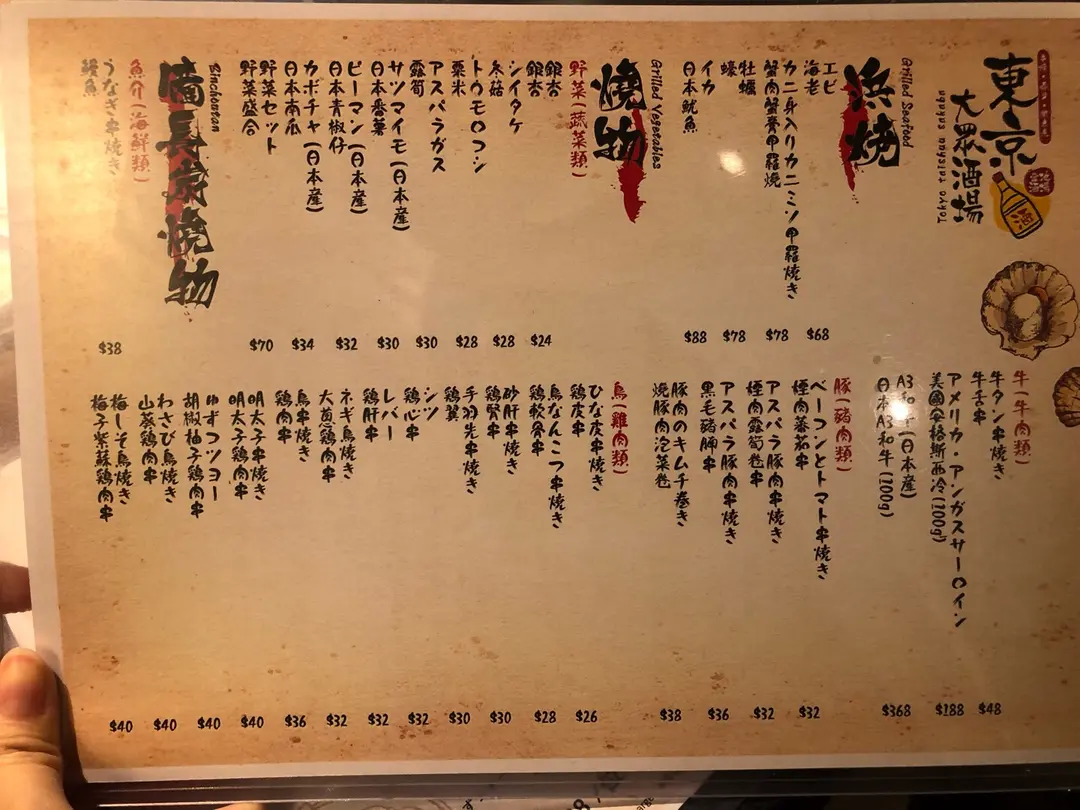 東京
大眾酒場
Tokyo taishuu sakaba
酒
浜燒
Grilled Seafood
エビ
海老
$68
カニ身入りカニミソ甲羅焼き
蟹肉蟹膏甲羅燒
$78
牡蠣
蠔
$78
イカ
日本魷魚
$88
燒物
Grilled Vegetables
野菜(蔬菜類)
銀杏
銀杏
$24
シイタケ
冬菇
$28
トウモロコシ
粟米
$28
アスパラガス
露筍
$30
サツマイモ(日本産)
日本番薯
$30
ピーマン(日本産)
日本青椒仔
$32
カボチャ(日本産)
日本南瓜
$34
野菜セット
野菜盛合
$70
備長炭燒物
Binchoutan
魚介(海鮮類)
うなぎ串焼き
鰻魚
$38
牛(牛肉類)
牛タン串焼き
牛舌串
$48
アメリカ・アンガスサーロイン
美國安格斯西冷(100g)
$188
A3和牛(日本産)
日本A3和牛(100g)
$368
豚(豬肉類)
ベーコンとトマト串焼き
煙肉蕃茄串
$32
アスパラ豚肉串焼き
煙肉露筍卷串
$32
アスパラ豚肉串焼き
黒毛豬腩串
$36
豚肉のキムチ巻き
燒豚肉泡菜卷
$38
鳥(雞肉類)
ひな皮串焼き
鶏皮串
$26
鳥なんこつ串焼き
鶏軟骨串
$28
砂肝串焼き
鶏腎串
$30
手羽先串焼き
鶏翼
$30
シツ
鶏心串
$32
レバー
鶏肝串
$32
ネギ鳥焼き
大葱鶏肉串
$32
鳥串焼き
鶏肉串
$36
明太子串焼き
明太子鶏肉串
$40
ゆずコツョー
胡椒柚子鶏肉串
$40
わさび鳥焼き
山葵鶏肉串
$40
梅しそ鳥焼き
梅子紫蘇鶏肉串
$40